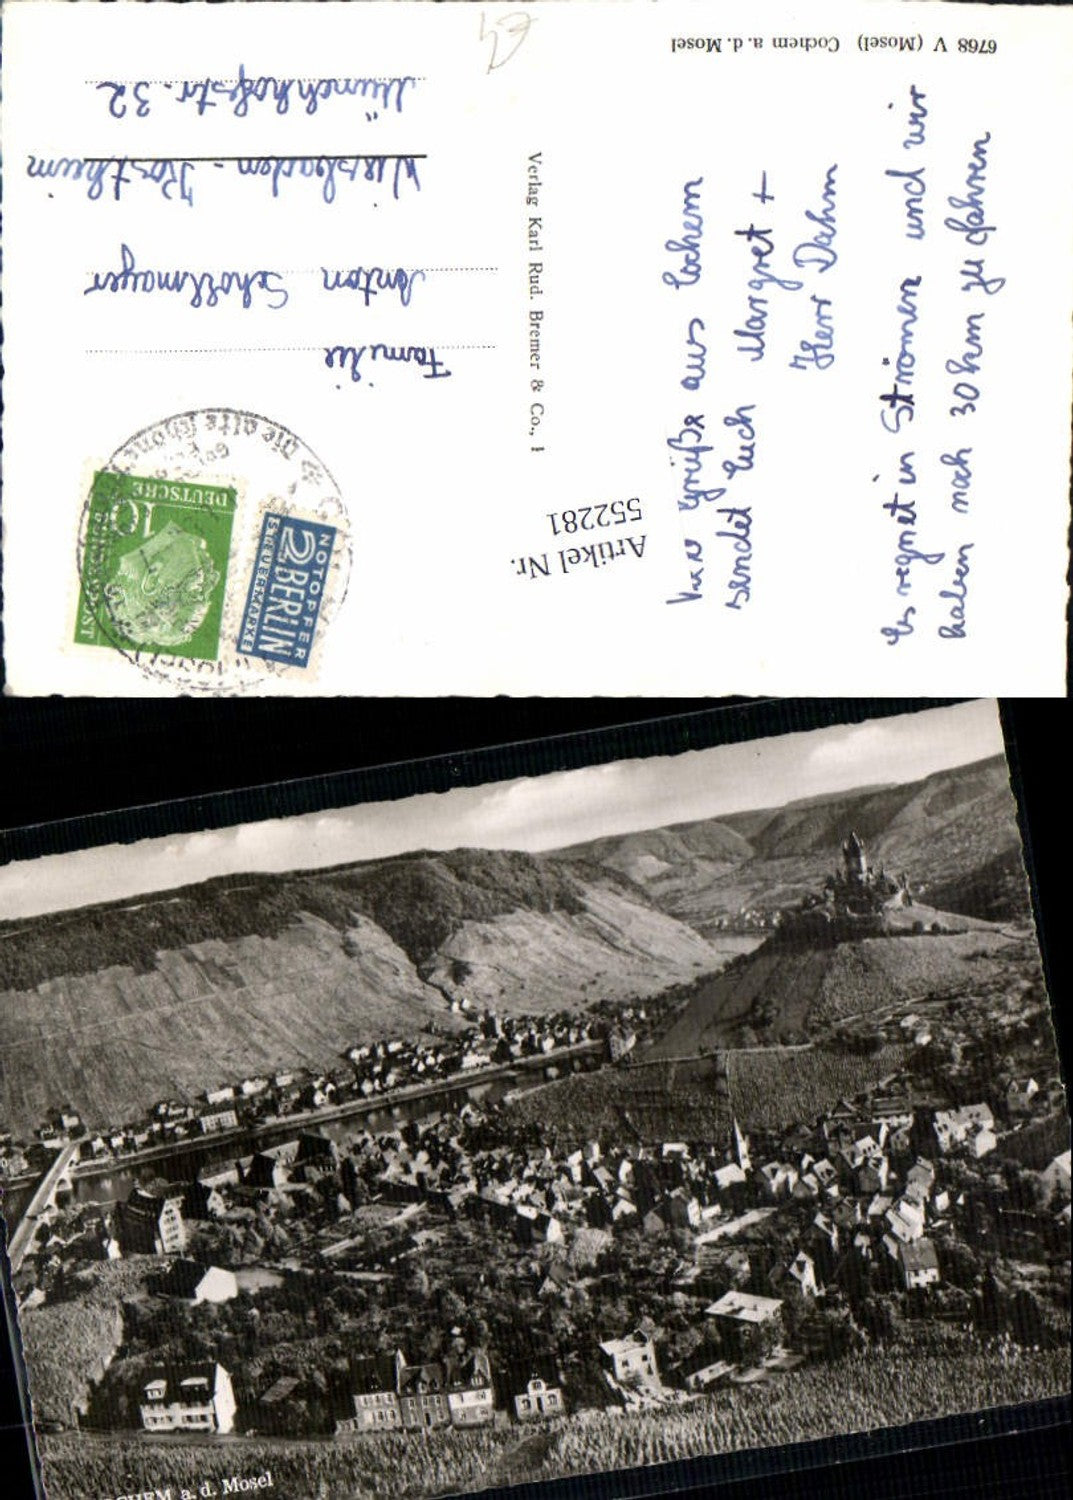 6768 V (Mosel) Cochem a. d. Mosel
Viele Grüße aus Cochem
sendet Euch Margret +
Herr Dahm
Es regnet in Strömen und wir
haben noch 30 km zu fahren
Verlag Karl Rud. Bremer & Co., 1
Artikel Nr.
552281
Familie
Anton Schollmayer
Wiesbaden - Kostheim
Münchhofstr. 32
Die alte schöne
DEUTSCHE
10
BUNDESPOST
NOTOPFER
2 BERLIN
STEUERMARKE
a. d. Mosel